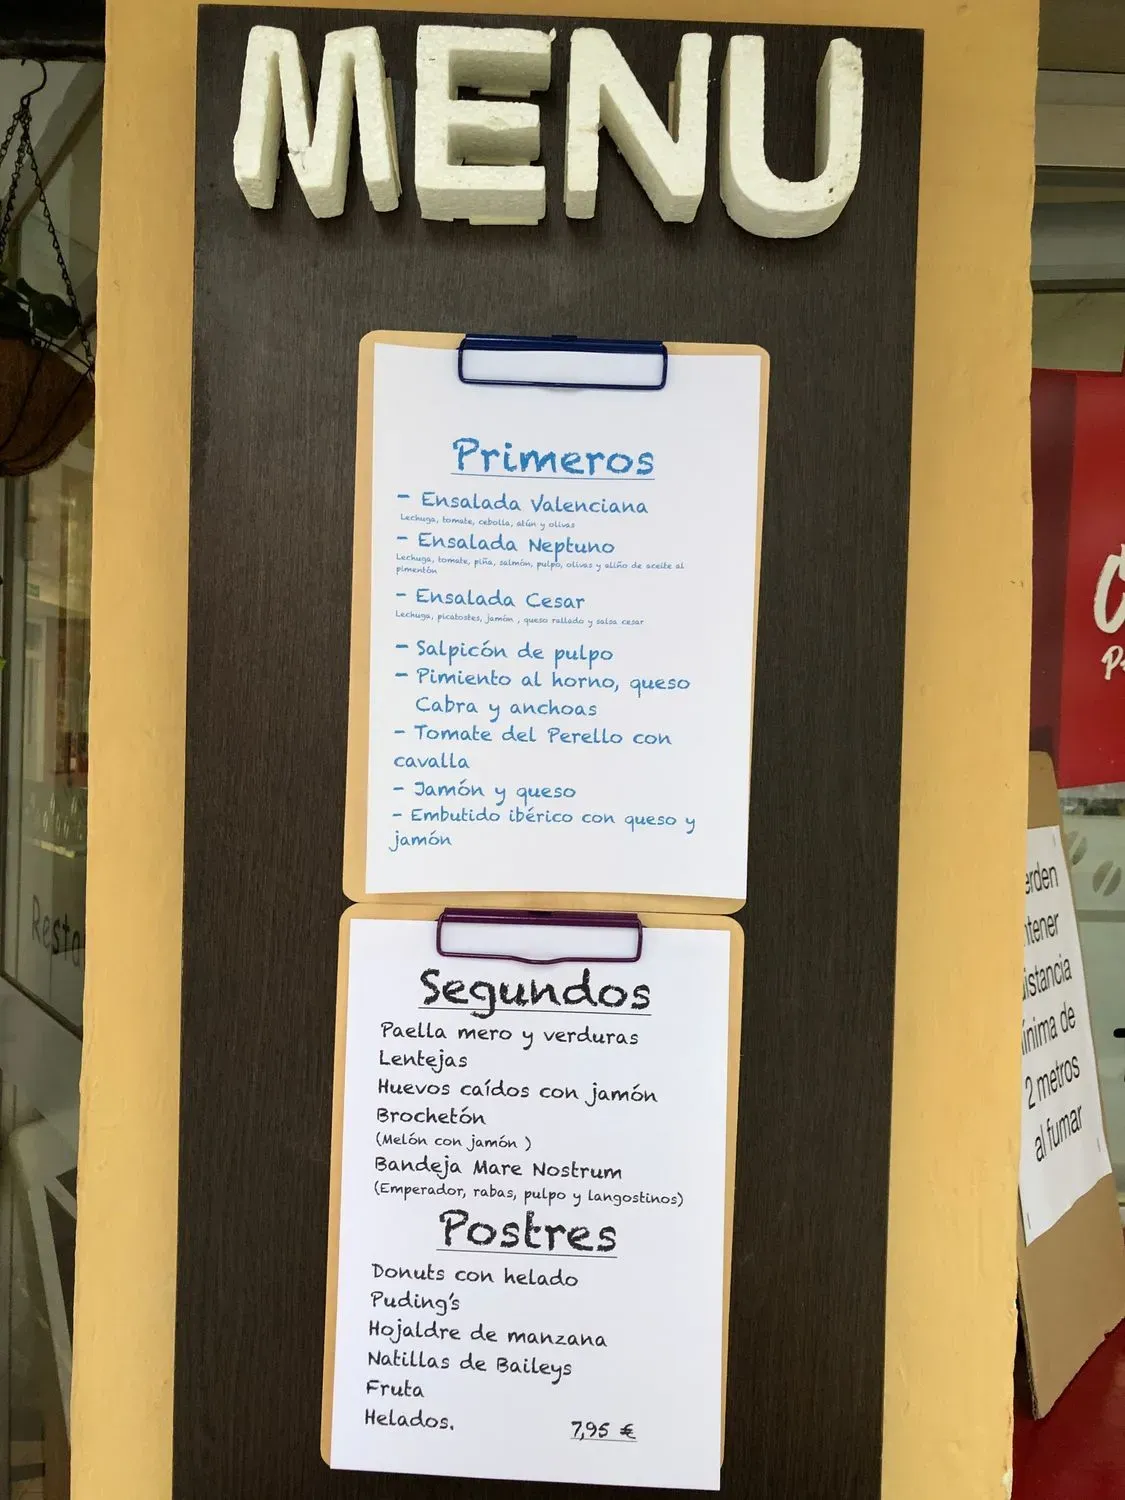 MENU
Primeros
- Ensalada Valenciana
Lechuga, tomate, cebolla, atún y olivas
- Ensalada Neptuno
Lechuga, tomate, piña, salmón, pulpo, olivas y aliño de aceite al
pimentón
- Ensalada Cesar
Lechuga, picatostes, jamón , queso rallado y salsa cesar
- Salpicón de pulpo
- Pimiento al horno, queso
Cabra y anchoas
- Tomate del Perello con
cavalla
- Jamón y queso
- Embutido ibérico con queso y
jamón
Segundos
Paella mero y verduras
Lentejas
Huevos caídos con jamón
Brochetón
(Melón con jamón )
Bandeja Mare Nostrum
(Emperador, rabas, pulpo y langostinos)
Postres
Donuts con helado
Puding's
Hojaldre de manzana
Natillas de Baileys
Fruta
Helados.
7,95 €
Resta
erden
ntener
distancia
ínima de
2 metros
al fumar